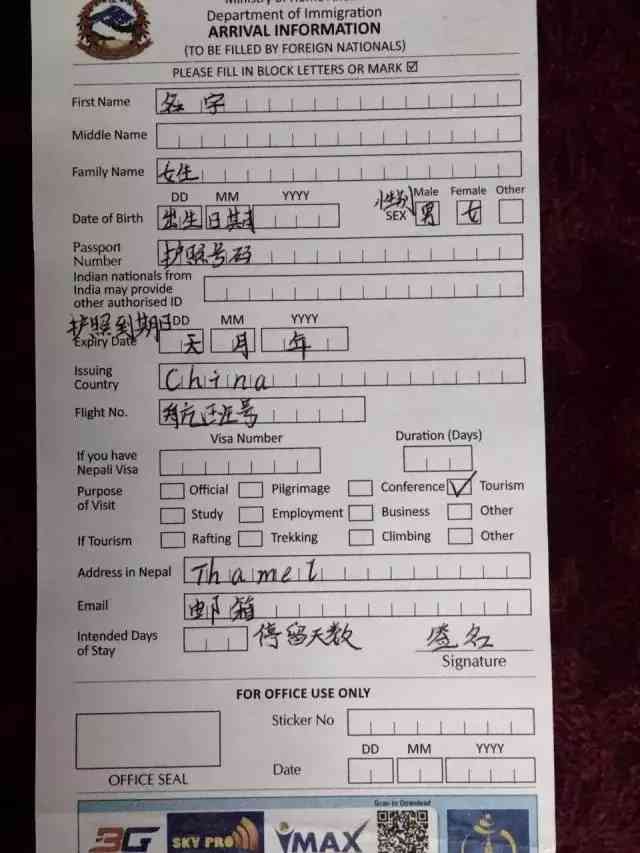 Department of Immigration
ARRIVAL INFORMATION
(TO BE FILLED BY FOREIGN NATIONALS)
PLEASE FILL IN BLOCK LETTERS OR MARK ☑
First Name 名字
Middle Name
Family Name 女生
DD MM YYYY 性别 Male Female Other
Date of Birth 出生日期 SEX 男 女
Passport Number 护照号码
Indian nationals from
India may provide
other authorised ID
护照到期日 DD MM YYYY
Expiry Date 天 月 年
Issuing Country China
Flight No. 号
Visa Number Duration (Days)
If you have
Nepali Visa
Purpose of Visit Official Pilgrimage Conference ✓ Tourism
Study Employment Business Other
If Tourism Rafting Trekking Climbing Other
Address in Nepal Thamel
Email 邮箱
Intended Days of Stay 停留天数 签名
Signature
FOR OFFICE USE ONLY
Sticker No
DD MM YYYY
Date
OFFICE SEAL
Scan to Download
3G SKY PRO YMAX